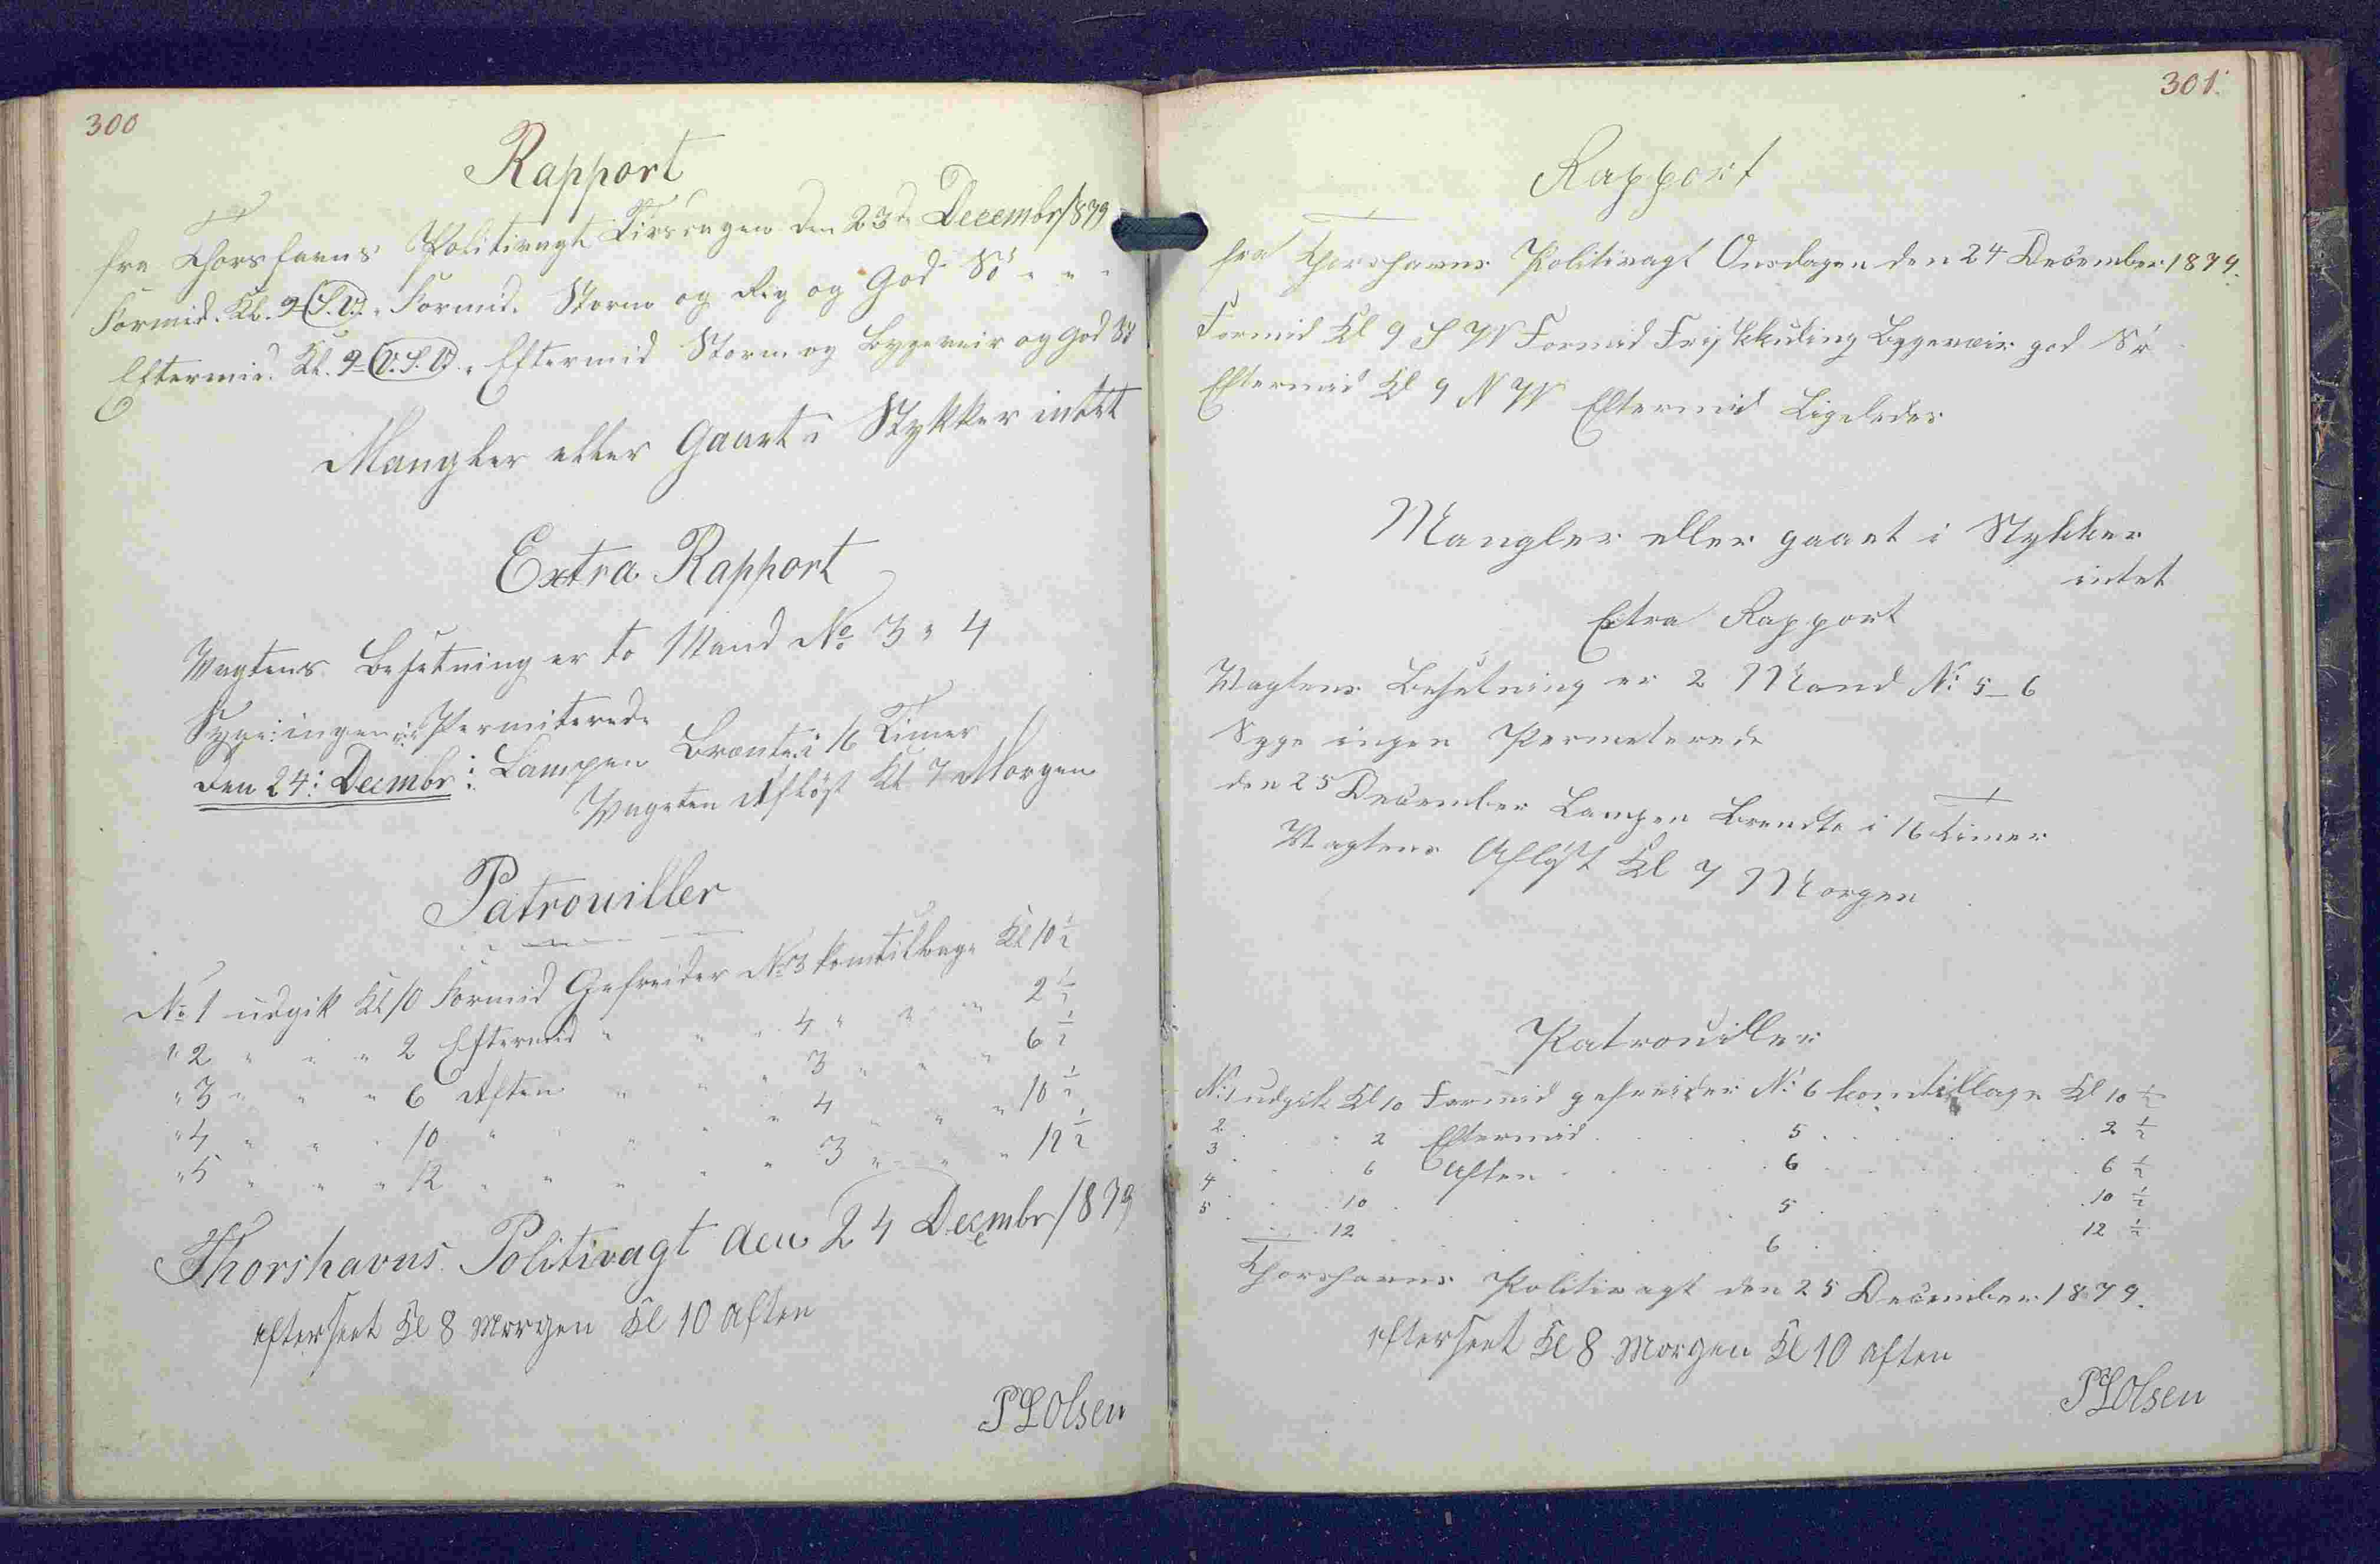 300
Rapport
fra Thorshavns Politivagt Tirsdagen den 23de Decembr 1879
Formid. Kl. 9 (S.V.) „ Formid. Storm og Reg og God Sö „ „ „
Eftermid Kl. 9 (V.S.V.) „ Eftermid Storm og Bygeveir og god Sö
Mangler eller Gaaet i Stykker intet
Extra Rapport
Vagtens Besetning er to Mand No 3 „ 4
Syge: ingen: Permiterede
Den 24: Decmbr: Lampen Brænte i 16 Timer
Vagten Aflöst Kl 7 Morgen
Patrouiller
No 1 udgik Kl 10 Formid Gefreider No 3 kom tilbage Kl 10 1/2
„ 2 „ „ „ 2 Eftermid „ „ „ 4 „ „ „ 2 1/2
„ 3 „ „ „ 6 Aften „ „ „ 3 „ „ „ 6 1/2
„ 4 „ „ „ 10 „ „ „ „ 4 „ „ „ 10 1/2
„ 5 „ „ „ 12 „ „ „ „ „ 3 „ „ „ 12 1/2
Thorshavns Politivagt den 24 Decembr 1879
efterseet Kl 8 Morgen Kl 10 aften
P L Olsen
301.
Rapport
fra Thorshavns Politivagt Onsdagen den 24 December 1879.
Formid Kl 9 S W Formid Frisk kuling Bygevær god Sö
Eftermid Kl 9 N W Eftermid Ligeledes
Mangler eller gaaet i Stykker
intet
Extra Rapport
Vagtens Besetning er 2 Mand No 5 – 6
Syge ingen Permeterede
den 25 December Lampen Brendte i 16 Timer
Vagtens Aflöst Kl 7 Morgen
Patrouiller
No 1 udgik Kl 10 Formid gefreider No 6 kom tilbage Kl 10 1/2
2 . . . 2 Eftermid . . . . 5 . . . . . 2 1/2
3 . . . 6 Aften . . . . . 6 . . . . . 6 1/2
4 . . . 10 . . . . . 5 . . . . . 10 1/2
5 . . . 12 . . . . . 6 . . . . . 12 1/2
Thorshavns Politivagt den 25 December 1879.
efterseet Kl 8 Morgen Kl 10 aften
P L Olsen